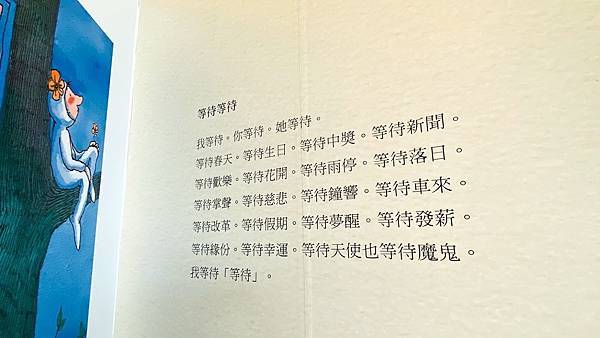 等待等待
我等待。你等待。她等待。
等待春天。等待生日。等待中獎。等待新聞。
等待歡樂。等待花開。等待雨停。等待落日。
等待掌聲。等待慈悲。等待鐘響。等待車來。
等待改革。等待假期。等待夢醒。等待發薪。
等待緣份。等待幸運。等待天使也等待魔鬼。
我等待「等待」。